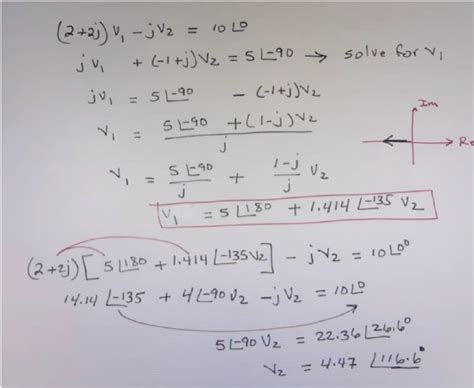 (2+2j) V₁ - jV₂ = 10∠0
jV₁ + (-1+j)V₂ = 5∠-90 → solve for V₁
jV₁ = 5∠-90 - (-1+j)V₂
V₁ = (5∠-90 + (1-j)V₂)/j
Im
Re
V₁ = 5∠-90/j + (1-j)/j V₂
V₁ = 5∠180 + 1.414∠-135 V₂
(2+2j)[5∠180 + 1.414∠-135V₂] - jV₂ = 10∠0°
14.14∠-135 + 4∠-90V₂ - jV₂ = 10∠0
5∠-90 V₂ = 22.36∠26.6°
V₂ = 4.47 ∠116.6°